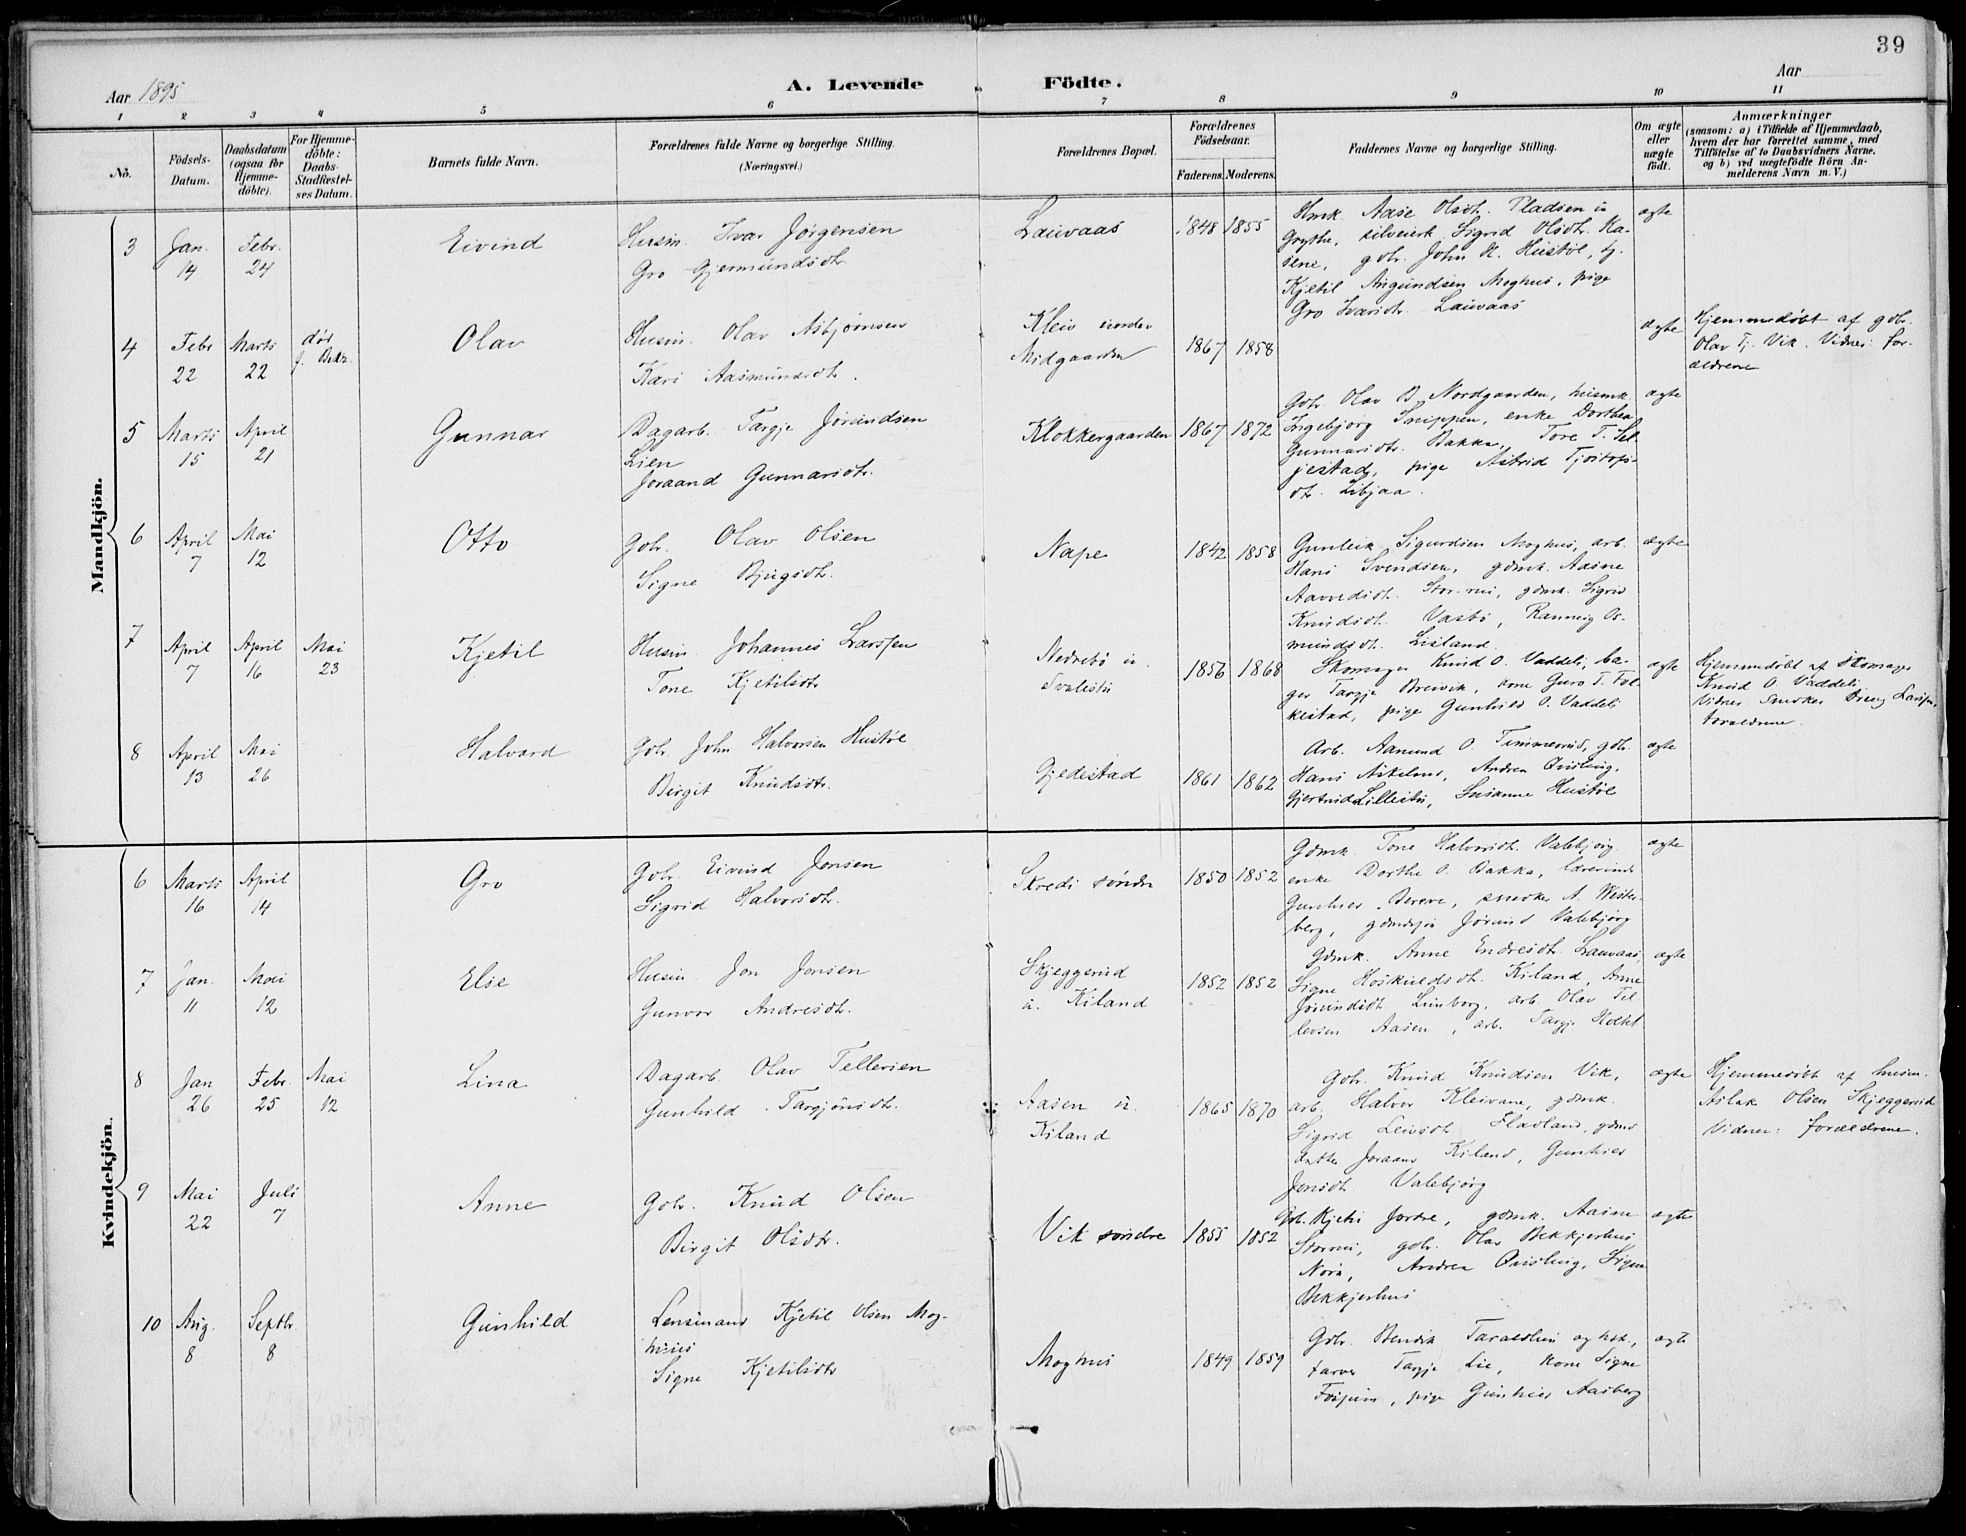 39
Aar 1895
A. Levende Födte.
Aar
1 2 3 4 5 6 7 8 9 10 11
Nö.
Födsels-Datum.
Daabsdatum (ogsaa for Hjemme-döbte).
For Hjemme-döbte: Daabs Stadfæstel-ses Datum.
Barnets fulde Navn.
Forældrenes fulde Navne og borgerlige Stilling. (Næringsvei.)
Forældrenes Bopæl.
Forældrenes Födselsaar.
Faderens. Moderens.
Faddernes Navne og borgerlige Stilling.
Om ægte eller uægte födt.
Anmærkninger (saasom: a) i Tilfælde af Hjemmedaab, hvem der har forrettet samme, med Tilföielse af to Daabsvidners Navne. og b) ved uægtefödte Börn An-melderens Navn m. V.)
Mandkjön.
3 Jan. 14 Febr. 24 Eivind
Husm. Ivar Jørgensen
Gro Gjermundsdtr.
Lauvaas 1848 1855
Hmk. Aase Olsdtr. Pladsen u.
Grythe, Sigrid Olsdtr. Ha-
sene, gbr. John H. Hustøl,
Kjetil Augundsen Moghus, pige
Gro Ivarsdtr. Lauvaas
ægte
4 Febr 22 Marts 22 død f. Bekr. Olav
Husm. Olav Asbjørnsen
Kari Aasmundsdtr.
Kleiv nordre
Midgaarden 1867 1858
ægte
Hjemmedøbt af gbr.
Olav Tj. Vik. Vidner: for-
ældrene
5 Marts 15 April 21 Gunnar
Dagarb. Targje Jørundsen
Lien
Joraand Gunnarsdtr.
Klokkergaarden 1867 1872
Gbr. Olav B. Nordgaarden, husmk.
Ingebjorg Snippen, enke Dorthea
Gunnarsdtr. Bakka, Tore T. Sel-
jestad, pige Astrid
dtr. Libjaa.
ægte
6 April 7 Mai 12 Otto
Gbr. Olav Olsen
Signe Bjugsdtr.
Nape 1842 1858
Gunleik Sigurdsen Moghus, arb.
Hans Svendsen, gdmk. Aasne
Aavvedsdtr. Stor-rui, gdmk. Sigrid
Knudsdtr. Vasbø, Ranneig Os-
mundsdtr. Lisland.
ægte
7 April 7 April 16 Mai 23 Kjetil
Husm. Johannes Larssen
Tone Kjetilsdtr
Nedrebø u.
Svalestu 1856 1868
Skomager Knud O. Vaddeli, ba-
ger Targje Breivik, kone Guro T. Fol-
kestad, pige Gunhild O. Vaddeli
ægte
Hjemmedøbt af Skomager
Knud O. Vaddeli
Vidner: Snedker Larsen,
forældrene.
8 April 13 Mai 26 Halvard
Gbr. John Halvorsen Hustøl
Birgit Knudsdtr.
Gjedestad 1861 1862
Arb. Aanund O. Timmerud, gbr.
Hans Askelund, Andrea Qvisling,
Gjertrud Lillestu, Susanne Hustøl
ægte
Kvindekjön.
6 Marts 16 April 14 Gro
Gbr. Eivind Jonsen
Sigrid Halvorsdtr.
Skredi søndre 1850 1852
Gdmk. Tone Halvorsdtr. Valebjørg
enke Dorthe O. Bakka, lærerinde
Gunhild Berere, snedker A. Wester-
berg, gdmdssøn Jørund Valebjørg
ægte
7 Jan. 11 Mai 12 Else
Husm Jon Jonsen
Gunvor Andresdtr.
Skjeggerud
u. Kiland 1852 1852
Gdmk. Anne Endresdtr. Lauvaas,
Signe Høskuldsdtr. Kiland, Anne
Jørundsdtr. Lunborg, arb. Olav Tel-
levsen Aasen, arb. Targje
ægte
8 Jan 26 Febr. 25 Mai 12 Lina
Dagarb. Olav Tellevsen
Gunhild Targjønsdtr.
Aasen u.
Kiland 1865 1870
Gbr. Knud Knudsen Vik,
arb. Halvor Kleivane, gdmk.
Sigrid Leivsdtr. Fladland, gdmd
datter Joraand Kiland, Gunhild
Jonsdtr Valebjørg
ægte
Hjemmedøbt af husm.
Aslak Olsen Skjeggerud
Vidner: forældrene.
9 Mai 22 Juli 7 Anne
Gbr. Knud Olsen
Birgit Olsdtr.
Vik søndre 1855 1852
Gbr. Kjetil Jordre, gdmk. Aasne
Storrui, gbr. Olav Bekkjerhus
Nora, Andrea Qvisling, Signe
Bekkjerhus
ægte
10 Aug. 8 Septbr. 8 Gunhild
Lensmand Kjetil Olsen Mog-
huus
Signe Kjetilsdtr
Moghus 1849 1859
Gbr. Bendik Taraldlien og hst.,
farver Targje Lie, kone Signe
Fosjuin, pige Gunhild Aasberg
ægte